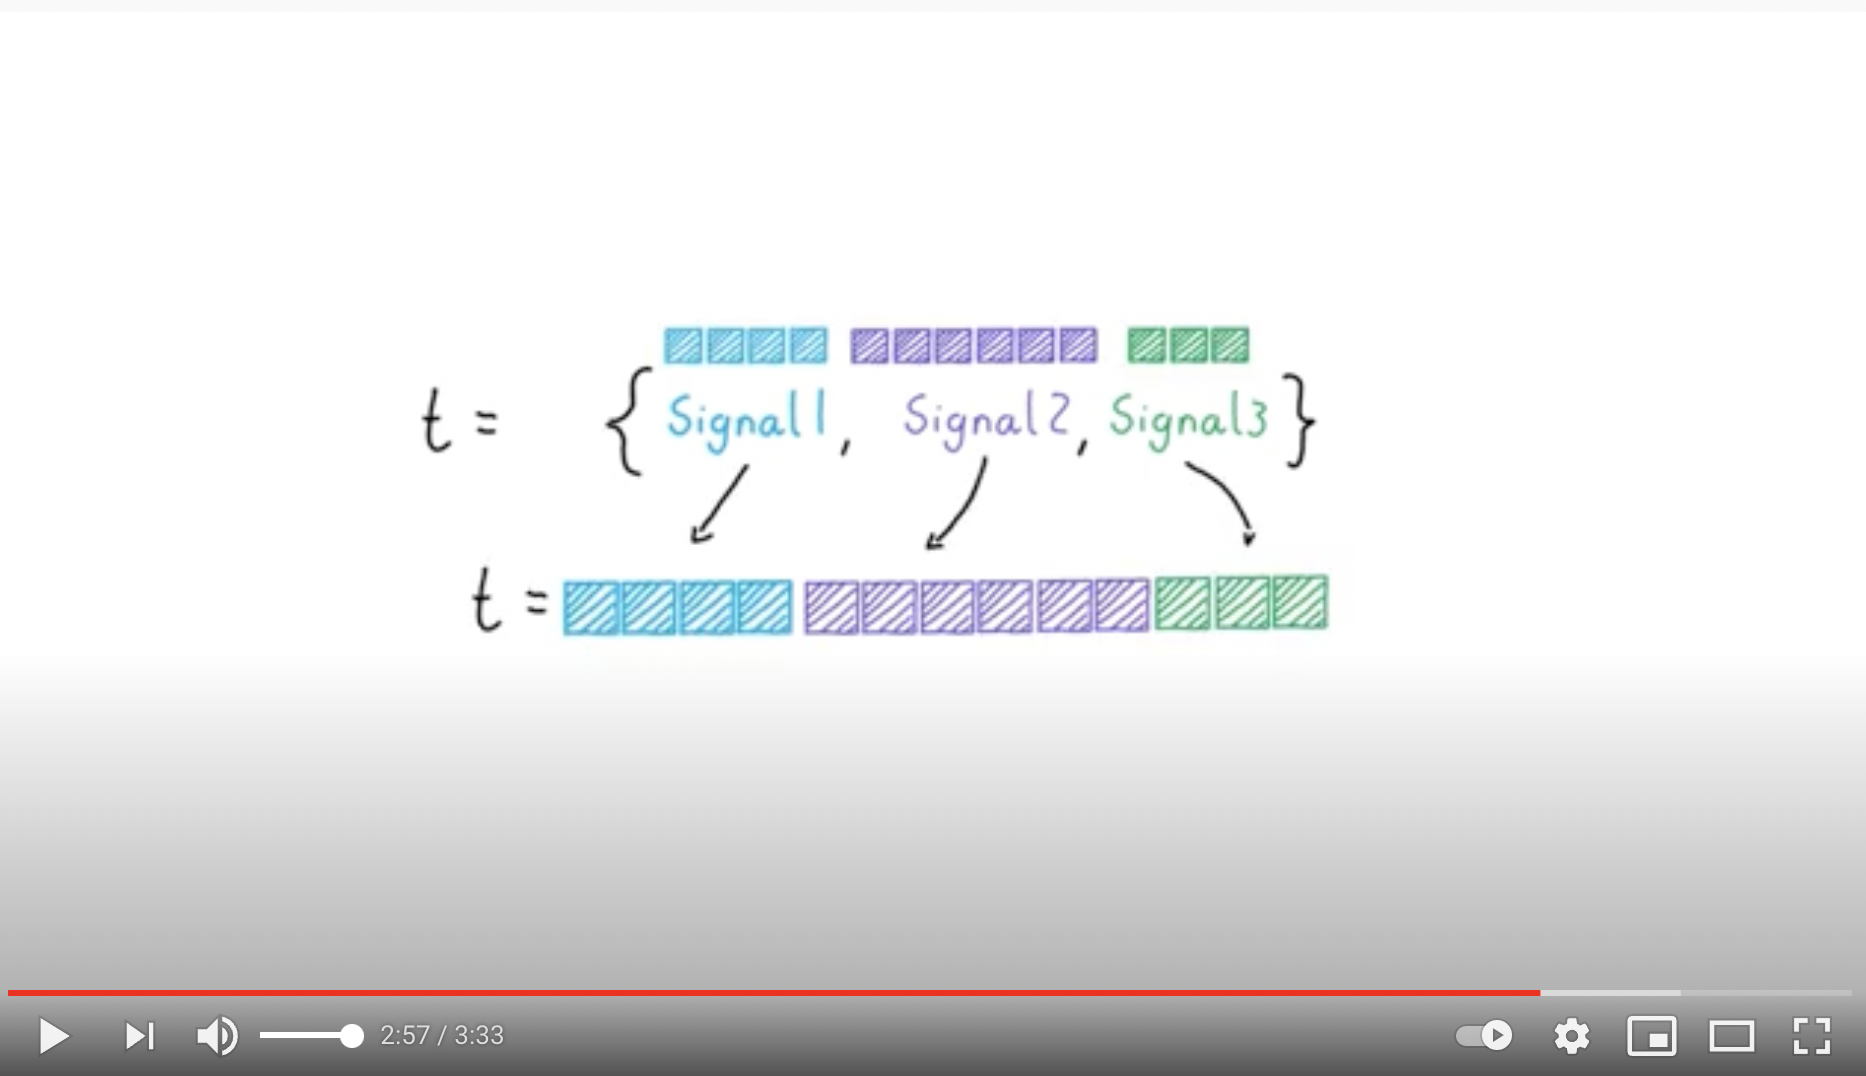 t = { Signal1, Signal2, Signal3 }
t =
2:57 / 3:33